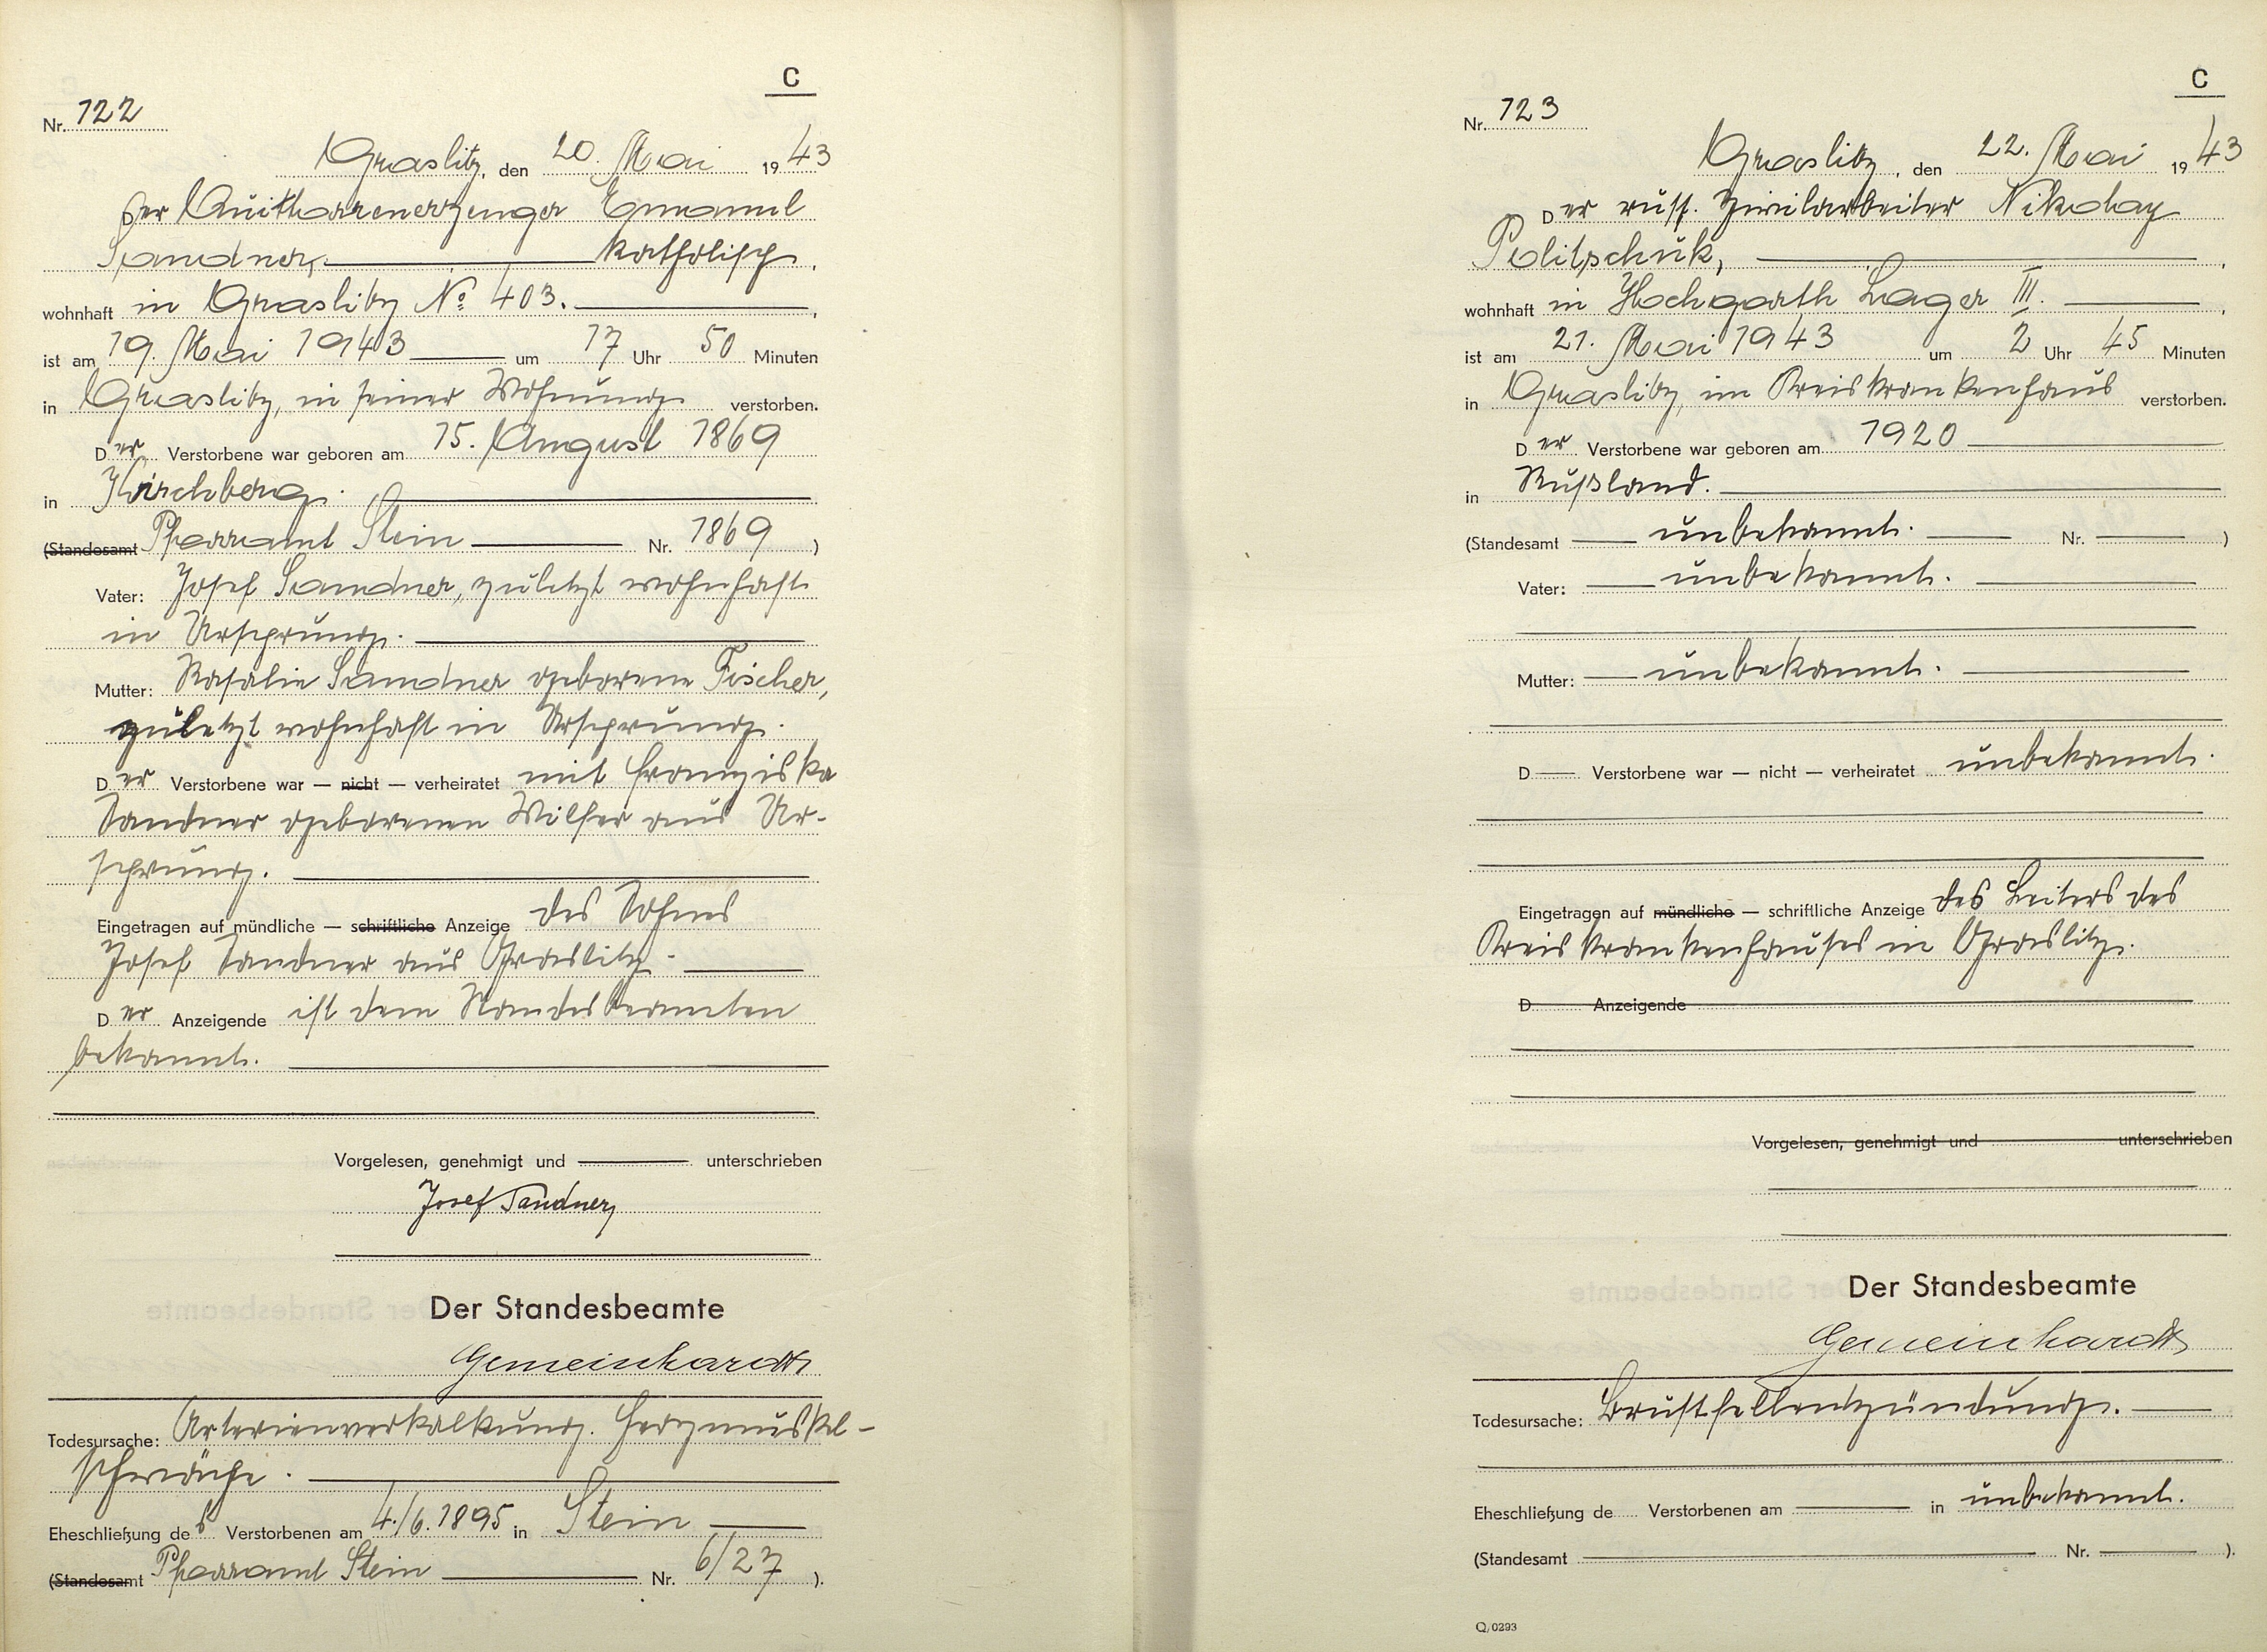 C
Nr. 122
Graslitz, den 20. Mai 1943
Der Quittharrenerzeuger Emanuel
Sandner, katholisch,
wohnhaft in Graslitz No 403.,
ist am 19. Mai 1943 um 17 Uhr 50 Minuten
in Graslitz, in seiner Wohnung verstorben.
Der Verstorbene war geboren am 15. August 1869
in Kirchberg.
(Standesamt Pfarramt Stein Nr. 1869)
Vater: Josef Sandner, zuletzt wohnhaft
in Ursprung.
Mutter: Rosalie Sandner geborene Fischer,
zuletzt wohnhaft in Ursprung.
Der Verstorbene war — nicht — verheiratet mit Franziska
Sandner geborenen Wilfer aus Ur-
sprung.
Eingetragen auf mündliche — schriftliche Anzeige des Sohnes
Josef Sandner aus Graslitz.
Der Anzeigende ist dem Standesbeamten
bekannt.
Vorgelesen, genehmigt und unterschrieben
Josef Sandner
Der Standesbeamte
Gemeinhardt
Todesursache: Arterienverkalkung. Herzmuskel-
schwäche.
Eheschließung des Verstorbenen am 4./6. 1895 in Stein
(Standesamt Pfarramt Stein Nr. 6/27).
C
Nr. 123
Graslitz, den 22. Mai 1943
Der russ. Zivilarbeiter Nikolay
Politschuk,
wohnhaft in Hochgarth Lager III.,
ist am 21. Mai 1943 um 2 Uhr 45 Minuten
in Graslitz, im Kreiskrankenhaus verstorben.
Der Verstorbene war geboren am 1920
in Rußland.
(Standesamt unbekannt. Nr. )
Vater: unbekannt.
Mutter: unbekannt.
D Verstorbene war — nicht — verheiratet unbekannt.
Eingetragen auf mündliche — schriftliche Anzeige des Leiters des
Kreiskrankenhauses in Graslitz.
D Anzeigende
Vorgelesen, genehmigt und unterschrieben
Der Standesbeamte
Gemeinhardt
Todesursache: Brustfellentzündung.
Eheschließung de Verstorbenen am in unbekannt.
(Standesamt Nr. ).
Q/0293